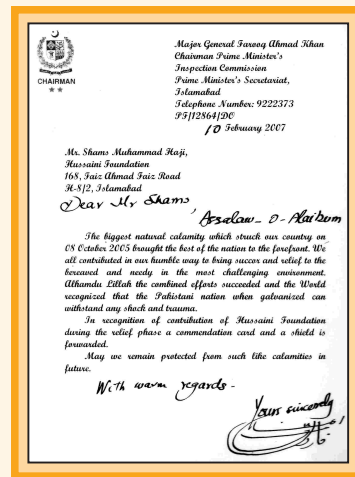 Major General Farooq Ahmad Khan
Chairman Prime Minister's
Inspection Commission
Prime Minister's Secretariat,
Islamabad
Telephone Number: 9222373
PF/12864/DO
10 February 2007
CHAIRMAN
Mr. Shams Muhammad Haji,
Hussaini Foundation
168, Faiz Ahmad Faiz Road
H-8/2, Islamabad
Dear Mr Shams,
Assalam-O-Alaikum
The biggest natural calamity which struck our country on
08 October 2005 brought the best of the nation to the forefront. We
all contributed in our humble way to bring succor and relief to the
bereaved and needy in the most challenging environment.
Alhamdu Lillah the combined efforts succeeded and the World
recognized that the Pakistani nation when galvanized can
withstand any shock and trauma.
In recognition of contribution of Hussaini Foundation
during the relief phase a commendation card and a shield is
forwarded.
May we remain protected from such like calamities in
future.
With warm regards -
Yours sincerely